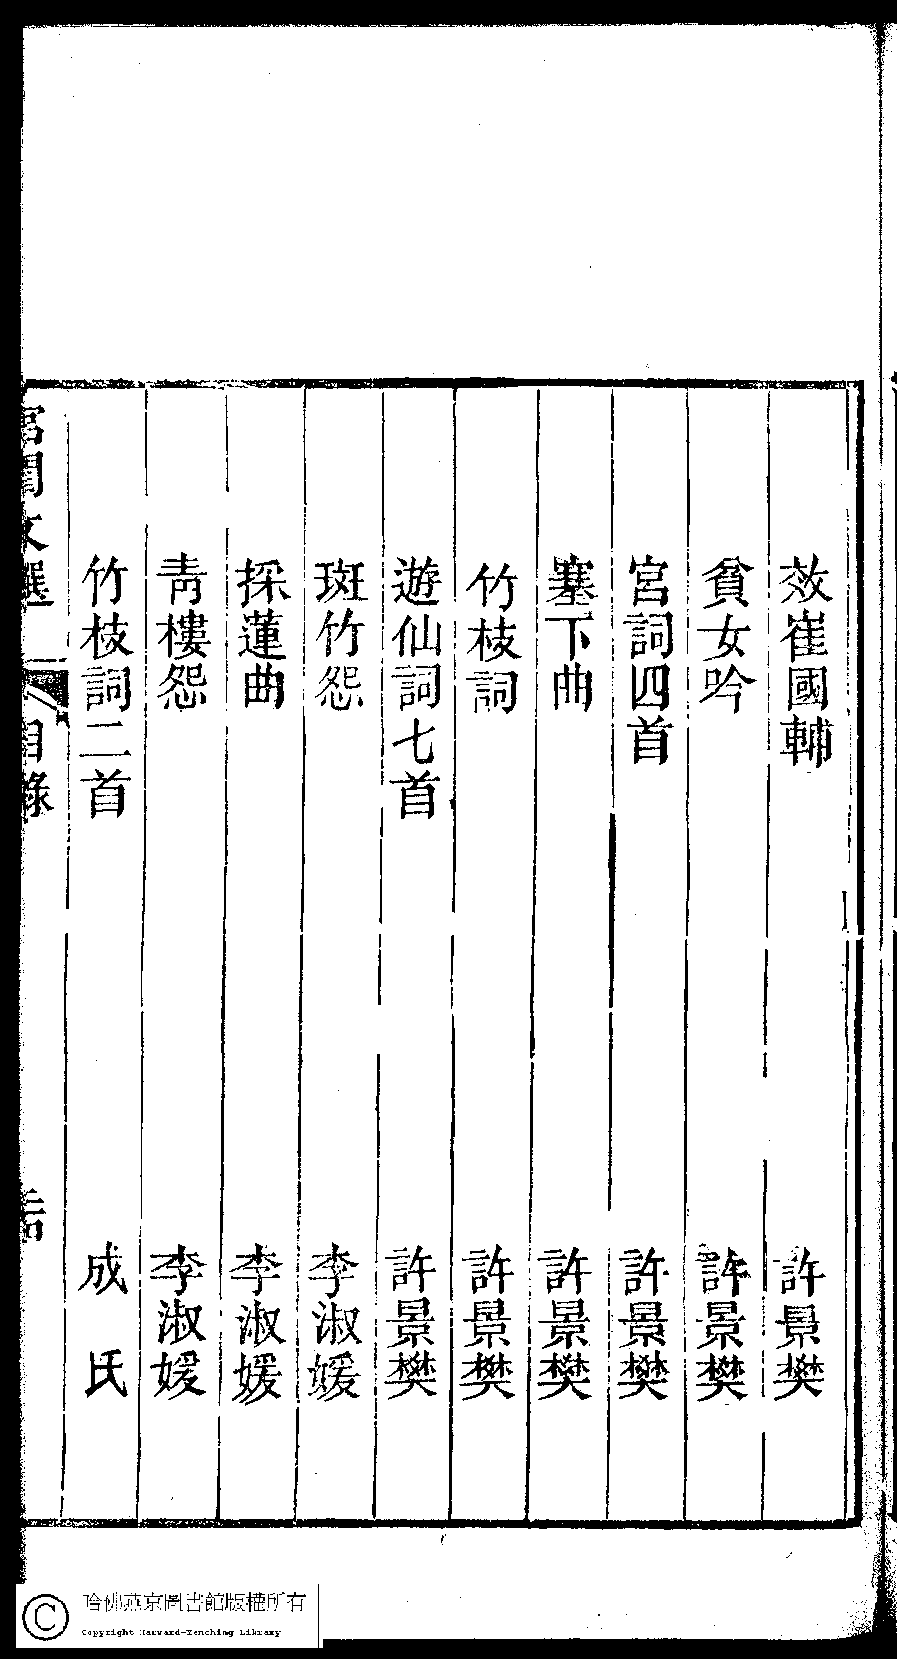 效崔國輔 許景樊
貧女吟 許景樊
宮詞四首 許景樊
塞下曲 許景樊
竹枝詞 許景樊
遊仙詞七首 許景樊
斑竹怨 李淑媛
採蓮曲 李淑媛
青樓怨 李淑媛
竹枝詞二首 成氏
宮閨文選 目錄
哈佛燕京圖書館版權所有
Copyright Harvard-Yenching Library